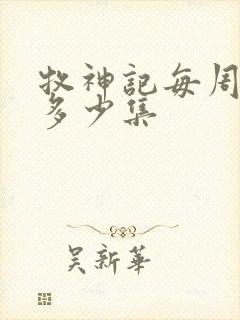 牧神記每周
多少集
吴新華